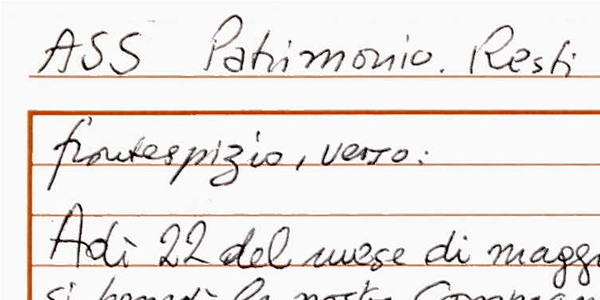 ASS Patrimonio. Resti
frontespizio, verso:
Adì 22 del mese di magg
si la nostra